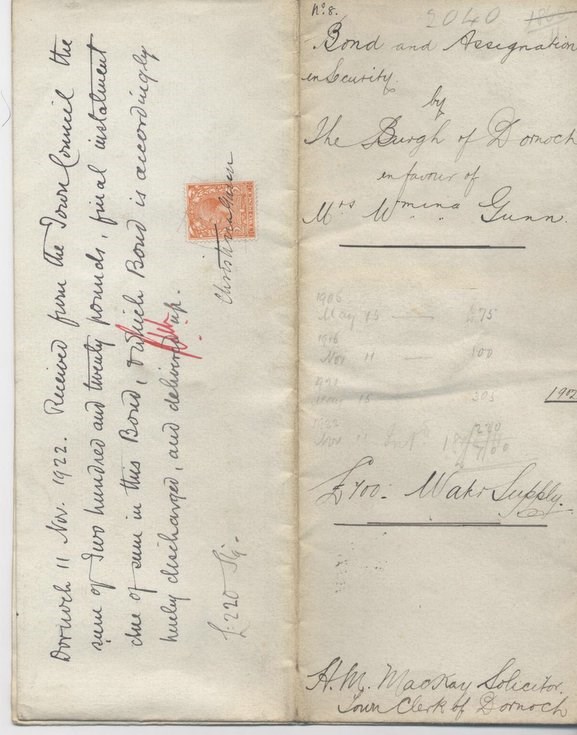 Dornoch 11 Nov. 1922. Received from the Town Council the
sum of Two hundred and twenty pounds, final instalment
due of sum in this Bond, & which Bond is accordingly
hereby discharged, and delivered up.
£220 Stg.
No. 8.
2040
Bond and Assignation
in Security
by
The Burgh of Dornoch
in favour of
Mrs Wmina Gunn.
1906
May 15 — £75
1916
Nov 11 — 100
1921
15 305
1922
Nov 11 220
700
190
£700. Water Supply.
H. M. Mackay Solicitor.
Town Clerk of Dornoch